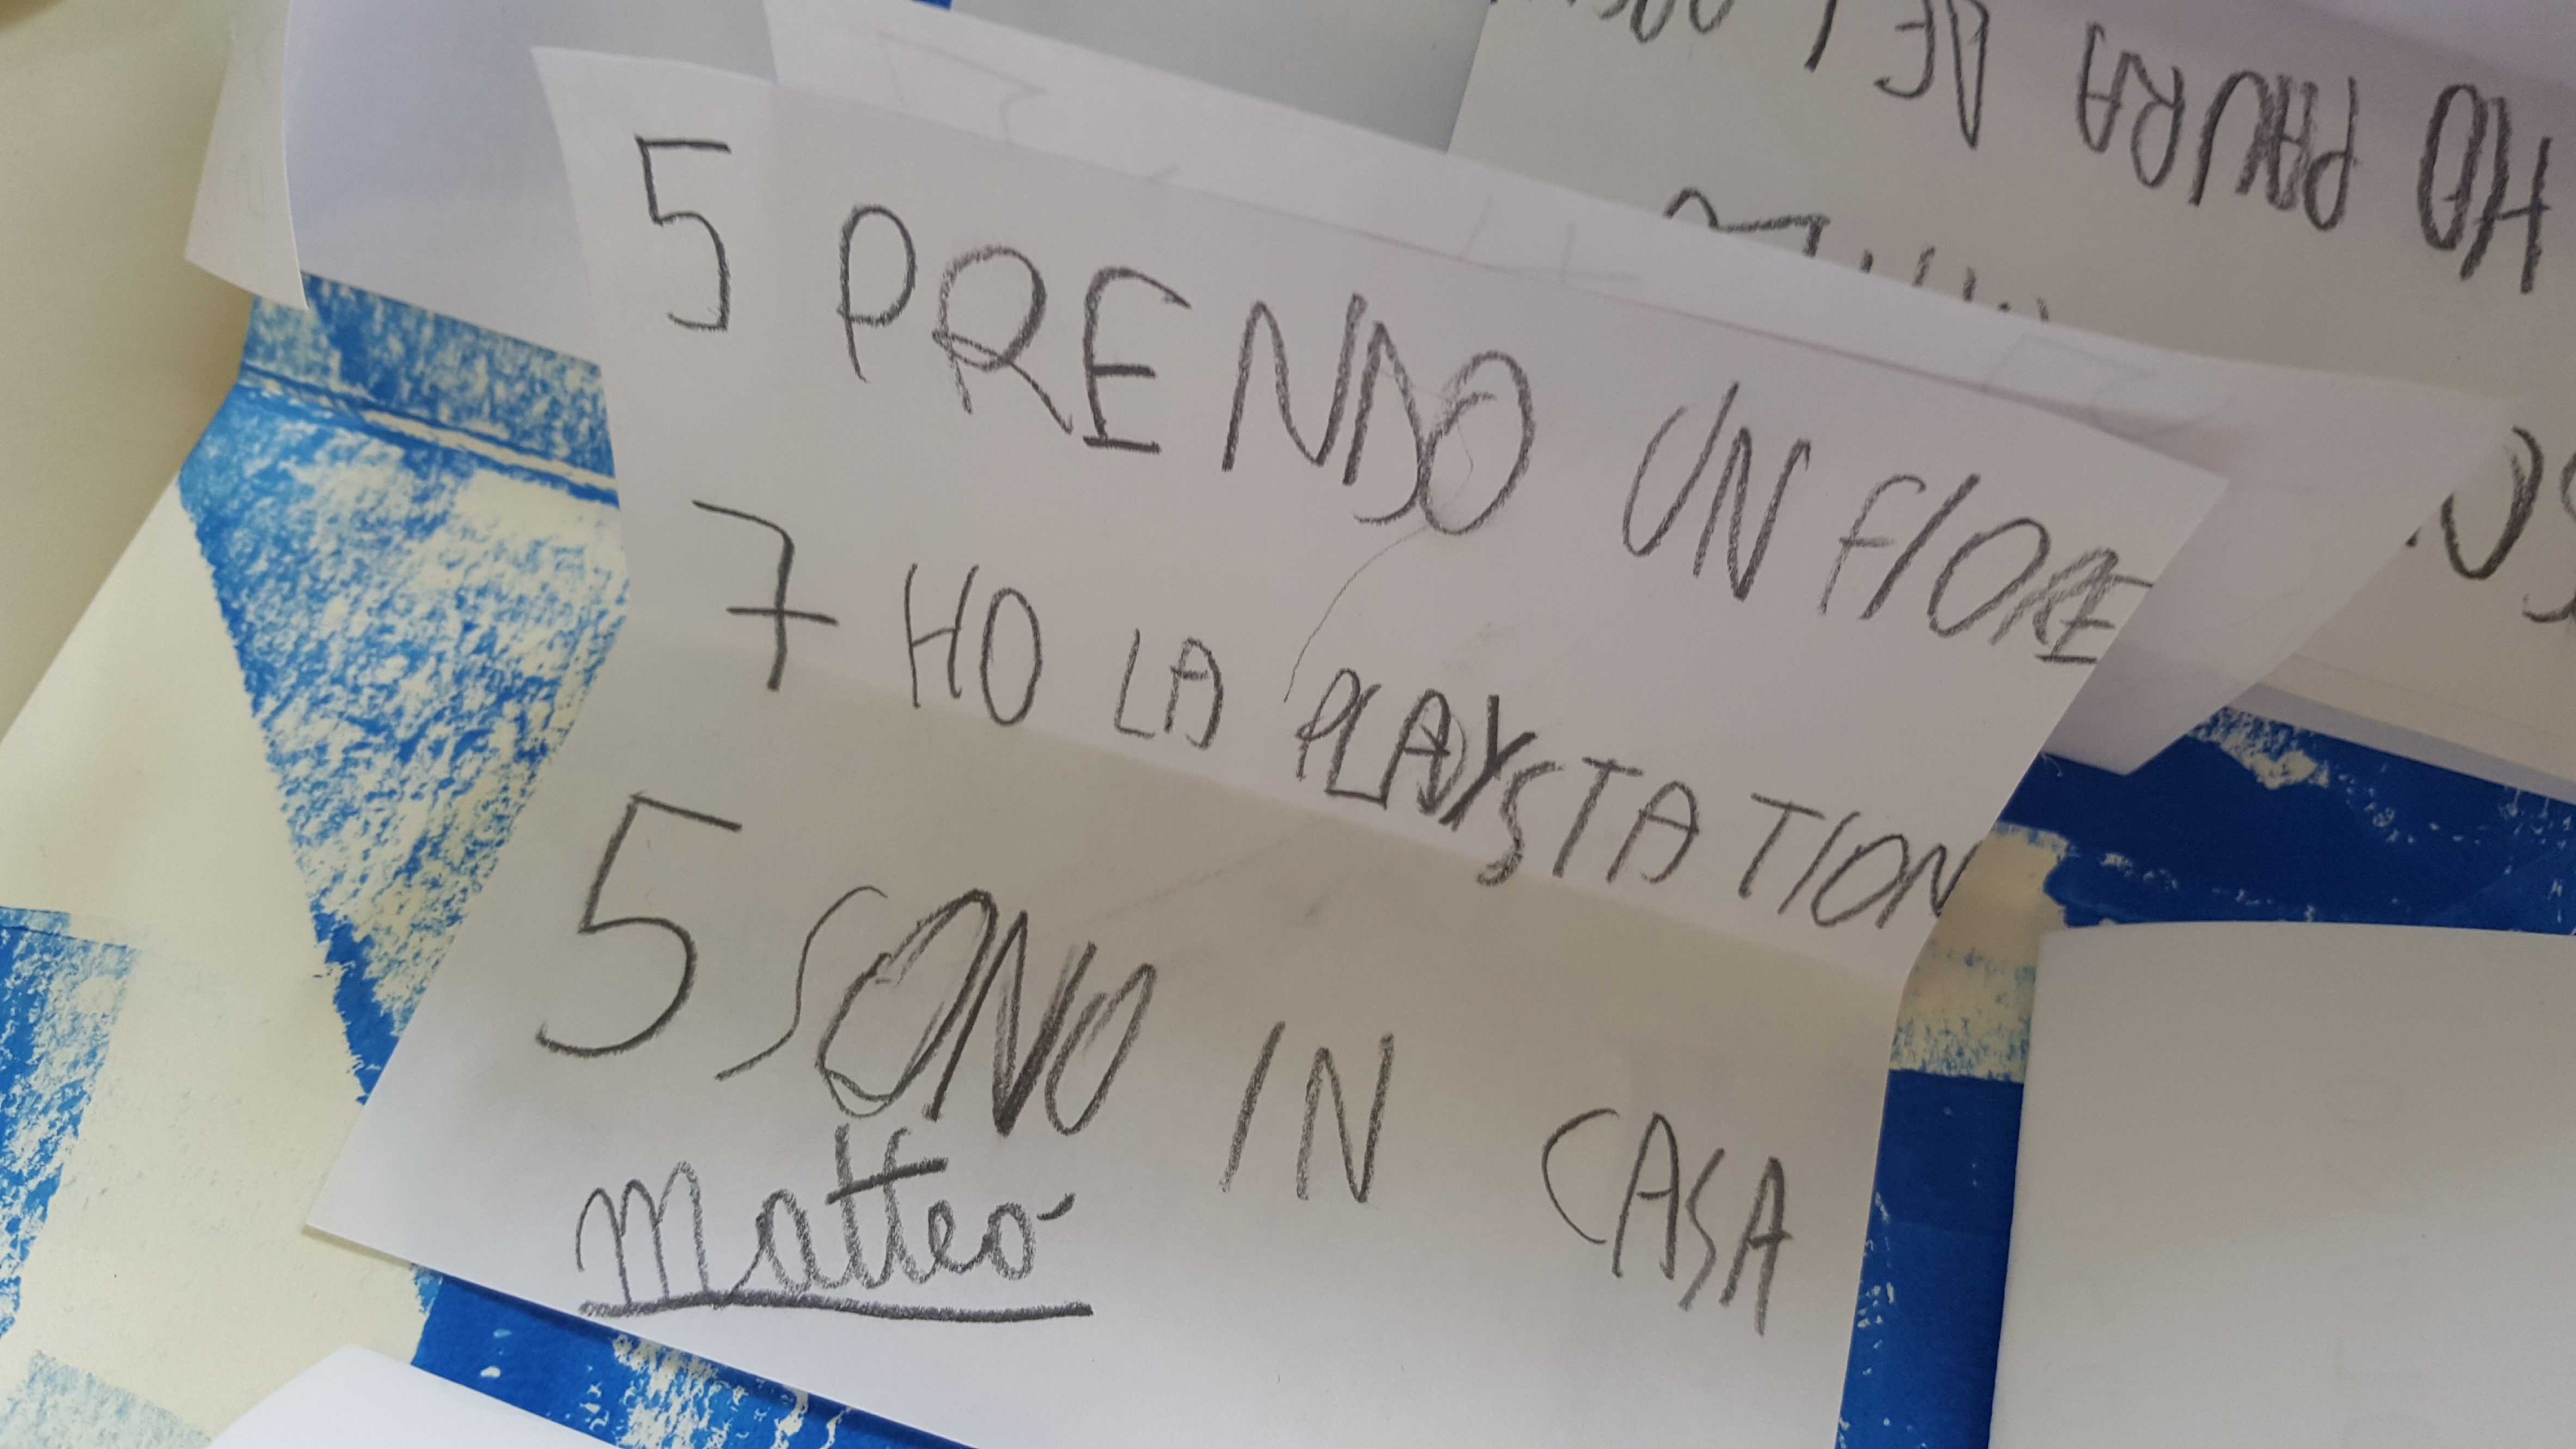 5 PRENDO UN FIORE
7 HO LA PLAYSTATION
5 SONO IN CASA
Matteo
HO PAURA DEL